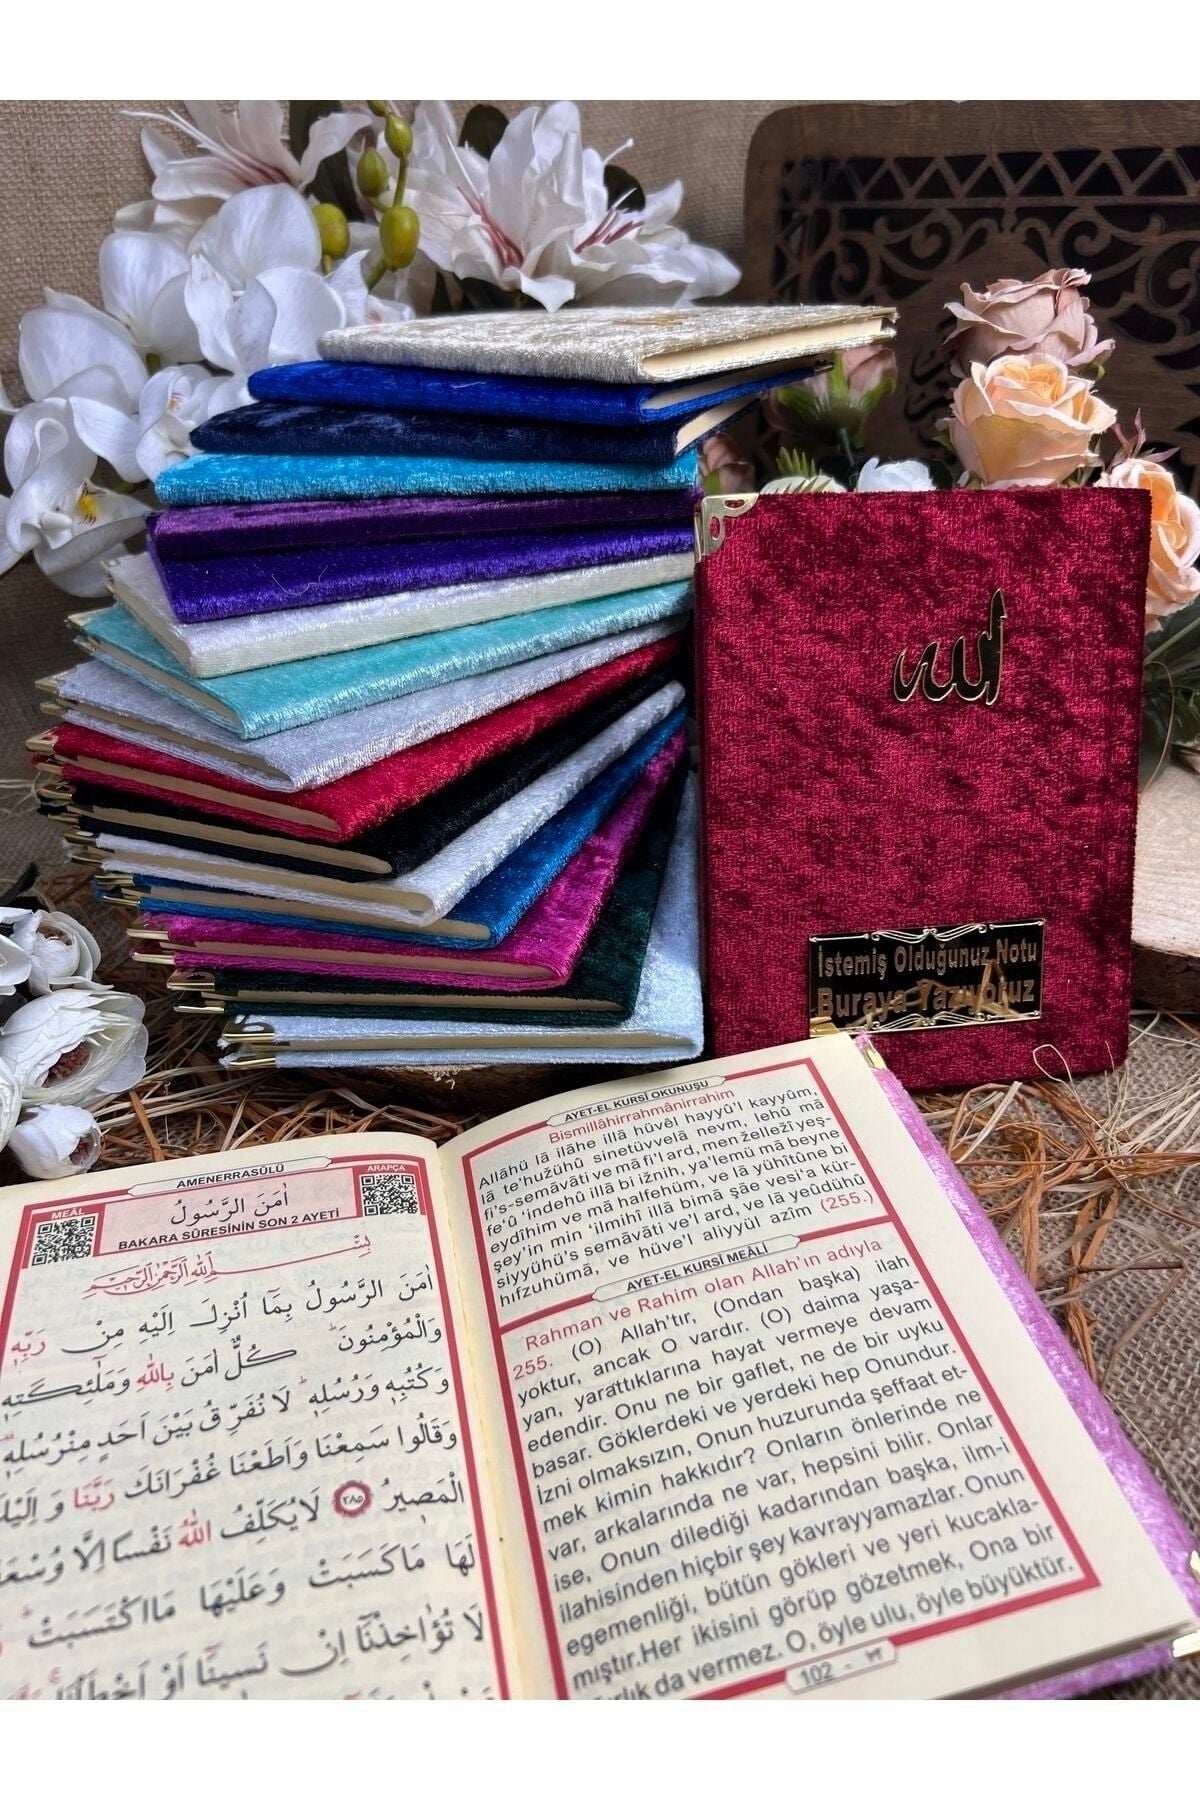 الله
İstemiş Olduğunuz Notu
Buraya Yazıyoruz
AMENERRASÛLÜ
MEÂL
ARAPÇA
اٰمَنَ الرَّسُولُ
BAKARA SÛRESİNİN SON 2 AYETİ
بِسْمِ اللّٰهِ الرَّحْمٰنِ الرَّحِيمِ
اٰمَنَ الرَّسُولُ بِمَٓا اُنْزِلَ اِلَيْهِ مِنْ رَبِّهٖ
وَالْمُؤْمِنُونَۜ كُلٌّ اٰمَنَ بِاللّٰهِ وَمَلٰٓئِكَتِهٖ
وَكُتُبِهٖ وَرُسُلِهٖۜ لَا نُفَرِّقُ بَيْنَ اَحَدٍ مِنْ رُسُلِهٖ
وَقَالُوا سَمِعْنَا وَاَطَعْنَا غُفْرَانَكَ رَبَّنَا وَاِلَيْكَ
الْمَصٖيرُ ﴿٢٨٥﴾ لَا يُكَلِّفُ اللّٰهُ نَفْسًا اِلَّا وُسْعَهَا
لَهَا مَا كَسَبَتْ وَعَلَيْهَا مَا اكْتَسَبَتْۜ
لَا تُؤَاخِذْنَٓا اِنْ نَسٖينَٓا اَوْ اَخْطَأْنَا
AYET-EL KURSİ OKUNUŞU
Bismillâhirrahmânirrahim
Allâhü lâ ilâhe illâ hüvêl hayyû'l kayyûm,
lâ te'huzühû sinetüvvelâ nevm, lehû mâ
fi's-semâvâti ve mâ fi'l ard, men zellezî yeş-
fe'û 'indehû illâ bi iznih, ya'lemü mâ beyne
eydîhim ve mâ halfehüm, ve lâ yühîtûne bi
şey'in min 'ilmihî illâ bimâ şâe vesi'a kür-
siyyühü's semâvâti ve'l ard, ve lâ yeûdühû
hıfzuhümâ, ve hüve'l aliyyül azîm (255.)
AYET-EL KURSİ MEÂLİ
Rahman ve Rahim olan Allah'ın adıyla
255. (O) Allah'tır, (Ondan başka) ilah
yoktur, ancak O vardır. (O) daima yaşa-
yan, yarattıklarına hayat vermeye devam
edendir. Onu ne bir gaflet, ne de bir uyku
basar. Göklerdeki ve yerdeki hep Onundur.
İzni olmaksızın, Onun huzurunda şeffaat et-
mek kimin hakkıdır? Onların önlerinde ne
var, arkalarında ne var, hepsini bilir. Onlar
ise, Onun dilediği kadarından başka, ilm-i
ilahisinden hiçbir şey kavrayyamazlar. Onun
egemenliği, bütün gökleri ve yeri kucakla-
mıştır.Her ikisini görüp gözetmek, Ona bir
ağırlık da vermez. O, öyle ulu, öyle büyüktür.
102 -